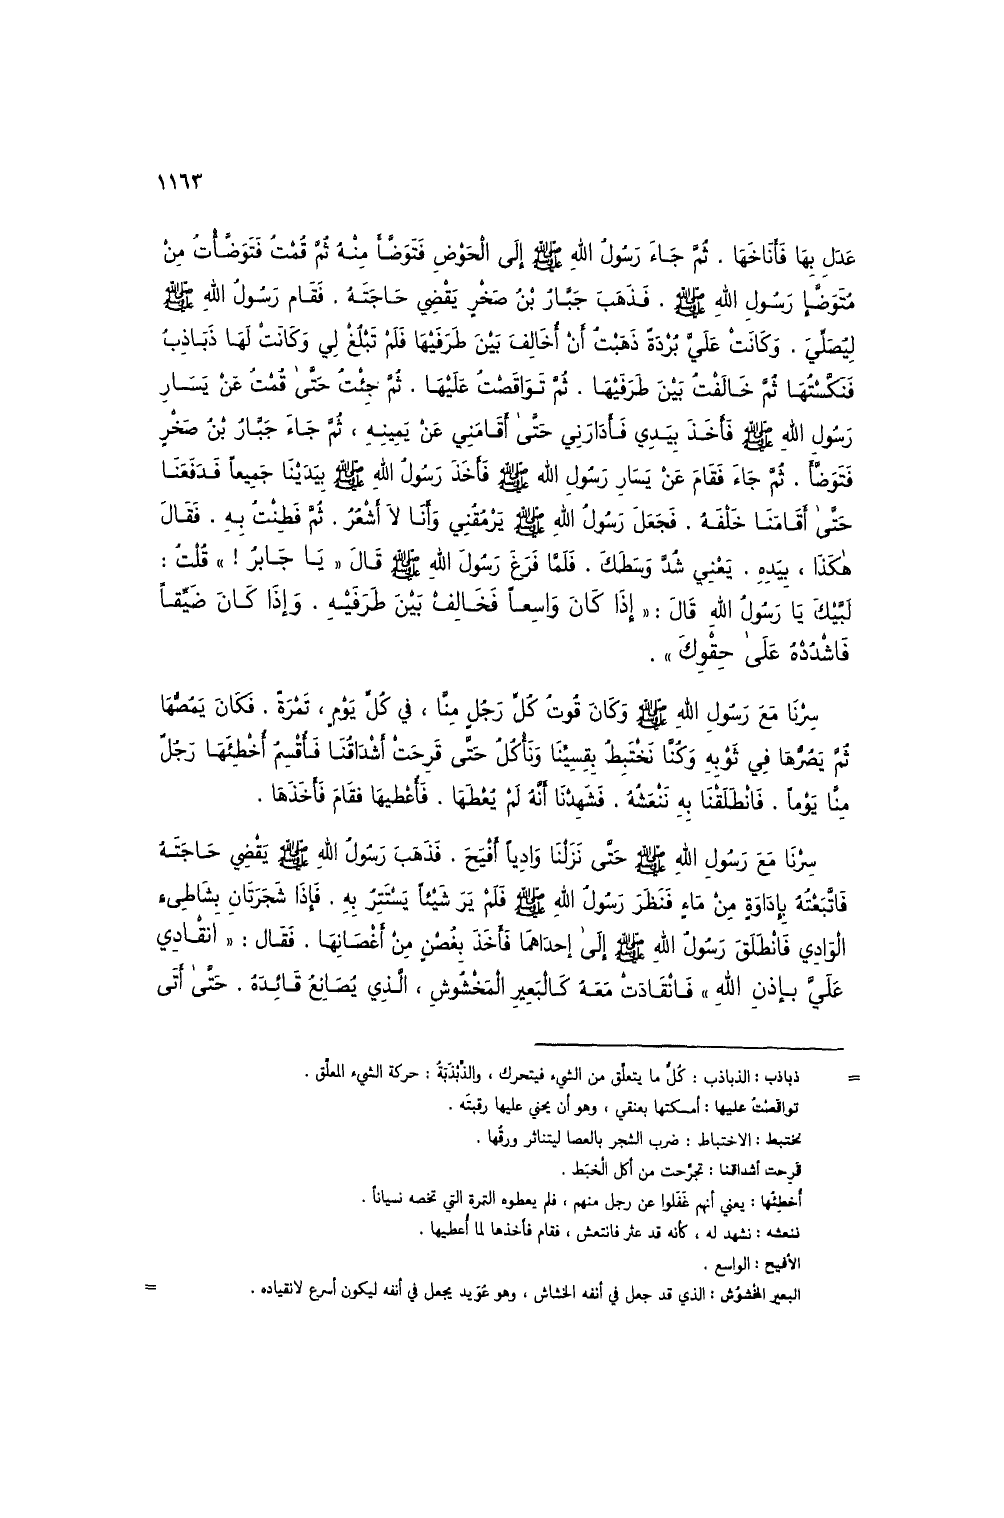 ١١٦٣
عَدَل بِهَا فَأَنَاخَهَا . ثُمَّ جَاءَ رَسُولُ اللهِ ﷺ إِلَى الْحَوْضِ فَتَوَضَّأَ مِنْهُ ثُمَّ قُمْتُ فَتَوَضَّأْتُ مِنْ
مُتَوَضَّإِ رَسُولِ اللهِ ﷺ . فَذَهَبَ جَبَّارُ بْنُ صَخْرٍ يَقْضِي حَاجَتَهُ . فَقَام رَسُولُ اللهِ ﷺ
لِيُصَلِّيَ . وَكَانَتْ عَلَيَّ بُرْدَةٌ ذَهَبْتُ أَنْ أُخَالِفَ بَيْنَ طَرَفَيْهَا فَلَمْ تَبْلُغْ لِي وَكَانَتْ لَهَا ذَبَاذِبُ
فَنَكَّسْتُهَا ثُمَّ خَالَفْتُ بَيْنَ طَرَفَيْهَا . ثُمَّ تَوَاقَصْتُ عَلَيْهَا . ثُمَّ جِئْتُ حَتَّىٰ قُمْتُ عَنْ يَسَارِ
رَسُولِ اللهِ ﷺ فَأَخَذَ بِيَدِي فَأَدَارَنِي حَتَّىٰ أَقَامَنِي عَنْ يَمِينِهِ ، ثُمَّ جَاءَ جَبَّارُ بْنُ صَخْرٍ
فَتَوَضَّأَ . ثُمَّ جَاءَ فَقَامَ عَنْ يَسَارِ رَسُولِ الله ﷺ فَأَخَذَ رَسُولُ اللهِ ﷺ بِيَدَيْنَا جَمِيعاً فَدَفَعَنَا
حَتَّىٰ أَقَامَنَا خَلْفَهُ . فَجَعَلَ رَسُولُ اللهِ ﷺ يَرْمُقُنِي وَأَنَا لاَ أَشْعُرُ . ثُمَّ فَطِنْتُ بِهِ . فَقَالَ
هٰكَذَا ، بِيَدِهِ . يَعْنِي شُدَّ وَسَطَكَ . فَلَمَّا فَرَغَ رَسُولُ اللهِ ﷺ قَالَ « يَا جَابرُ ! » قُلْتُ :
لَبَّيْكَ يَا رَسُولُ اللهِ قَالَ : « إِذَا كَانَ وَاسِعاً فَخَالِفْ بَيْنَ طَرَفَيْهِ . وَإِذَا كَانَ ضَيِّقاً
فَاشْدُدْهُ عَلَىٰ حِقْوِكَ » .
سِرْنَا مَعَ رَسُولِ اللهِ ﷺ وَكَانَ قُوتُ كُلِّ رَجُلٍ مِنَّا ، في كُلِّ يَوْمٍ ، تَمْرَةً . فَكَانَ يَمَصُّهَا
ثُمَّ يَصُرُّهَا فِي ثَوْبِهِ وَكُنَّا نَخْتَبِطُ بِقِسِيِّنَا وَنَأْكُلُ حَتَّى قَرِحَتْ أَشْدَاقُنَا فَأَقْسِمُ أُخْطِئَهَا رَجُلٌ
مِنَّا يَوْماً . فَانْطَلَقْنَا بِهِ نَنْعَشُهُ . فَشَهِدْنَا أَنَّهُ لَمْ يُعْطَهَا . فَأُعْطِيهَا فقَامَ فَأَخَذَهَا .
سِرْنَا مَعَ رَسُولِ اللهِ ﷺ حَتَّى نَزَلْنَا وَادِياً أَفْيَحَ . فَذَهَبَ رَسُولُ اللهِ ﷺ يَقْضِي حَاجَتَهُ
فَاتَّبَعْتُهُ بِإِدَاوَةٍ مِنْ مَاءٍ فَنَظَرَ رَسُولُ اللهِ ﷺ فَلَمْ يَرَ شَيْئاً يَسْتَتِرُ بِهِ . فَإِذَا شَجَرَتَانِ بِشَاطِىء
الْوَادِي فَانْطَلَقَ رَسُولُ اللهِ ﷺ إِلَىٰ إحدَاهُمَا فَأَخَذَ بِغُصْنٍ مِنْ أَغْصَانِهَا . فَقَال : « انْقَادِي
عَلَيَّ بِإذنِ اللهِ » فَانْقَادَتْ مَعَهُ كَالْبَعِيرِ الْمَخْشُوشِ ، الَّذِي يُصَانِعُ قَائِدَهُ . حَتَّىٰ أَتَى
= ذباذب : الذباذب : كُلُّ ما يتعلّق من الشيء فيتحرك ، والذَّبْذَبَةُ : حركة الشيء المعلّق .
تواقصْتُ عليها : أمسكتها بعنقي ، وهو أن يحني عليها رقبتَه .
نختبط : الاختباط : ضرب الشجر بالعصا ليتناثر ورقُها .
قَرِحت أشداقنا : تجرَّحت من أكل الْخبَط .
أُخطِئَها : يعني أنهم غَفَلوا عن رجل منهم ، فلم يعطوه التمرة التي تخصه نسياناً .
ننعشه : نشهد له ، كأنه قد عثر فانتعش ، فقام فأخذها لما أُعطيها .
الأفيح : الواسع .
البعير المخشوش : الذي قد جعل في أنفه الخشاش ، وهو عُوَيد يجعل في أنفه ليكون أسرع لانقياده . =